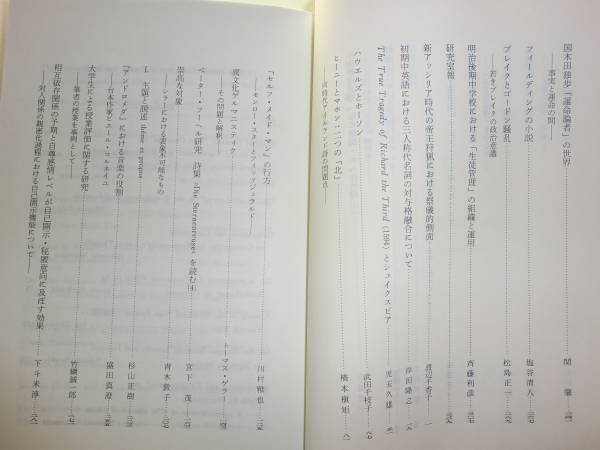 国木田独歩『運命論者』の世界
――事実と運命の間――
関 肇
フィールディングの小説
塩谷清人
ブレイクとゴードン騒乱
――若きブレイクの政治意識――
松島正一
明治後期中学校における「生徒管理」の組織と運用
斉藤利彦
研究室報
新アッシリア時代の帝王狩猟における祭儀的側面
渡辺千香子
初期中英語における三人称代名詞の対与格融合について
岸田隆之
The True Tragedy of Richard the Third (1594) とシェイクスピア
児玉久雄
ハウエルズとホーソン
武田千枝子
ヒーニーとマホン：二つの「北」
――政治的アイルランド詩の問題点――
橋本槇矩
「セルフ・メイド・マン」の行方
――モンロー・スターとフィッツジェラルド――
川村雅也
異文化ゲルマニスティク
――その問題と解釈――
トーマス・ゲラー
ペーター・フーヘル研究 詩集《Die Sternenreuse》を読む(4)
宮下 茂
崇高な対象
――シラーにおける表象不可能なもの――
青木敦子
I. 主題と説述 thème et propos
杉山正樹
『アンドロメダ』における音楽の役割
――台本作家ピエール・コルネイユ――
盛田真澄
大学生による授業評価に関する研究
――筆者の授業を事例として――
竹綱誠一郎
相互依存関係の予期と自尊感情レベルが自己開示・秘匿意向に及ぼす効果
――対人関係の親密化過程における自己開示機能について――
下斗米淳